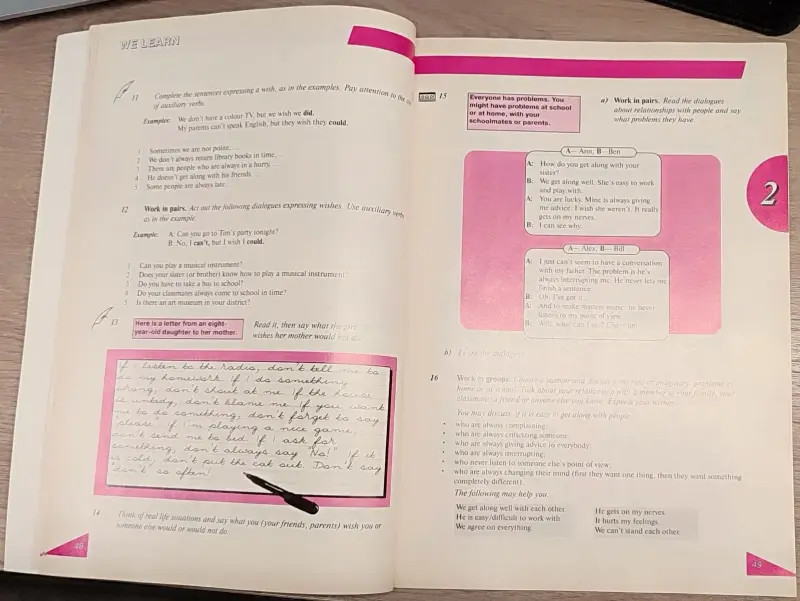 WE LEARN
11 Complete the sentences expressing a wish, as in the examples. Pay attention to the use
of auxiliary verbs.
Examples: We don't have a colour TV, but we wish we did.
My parents can't speak English, but they wish they could.
1 Sometimes we are not polite, ...
2 We don't always return library books in time, ...
3 There are people who are always in a hurry, ...
4 He doesn't get along with his friends, ...
5 Some people are always late.
12 Work in pairs. Act out the following dialogues expressing wishes. Use auxiliary verbs
as in the example.
Example: A: Can you go to Tim's party tonight?
B: No, I can't, but I wish I could.
1 Can you play a musical instrument?
2 Does your sister (or brother) know how to play a musical instrument?
3 Do you have to take a bus to school?
4 Do your classmates always come to school in time?
5 Is there an art museum in your district?
13 Here is a letter from an eight-
year-old daughter to her mother.
Read it, then say what the girl
wishes her mother would not do.
If I listen to the radio, don't tell me to
do my homework. If I do something
wrong, don't shout at me. If the house
is untidy, don't blame me. If you want
me to do something, don't forget to say
"please". If I'm playing a nice game,
don't send me to bed. If I ask for
something, don't always say "No!" If it
is cold, don't put the cat out. Don't say
"don't" so often!
14 Think of real life situations and say what you (your friends, parents) wish you or
someone else would or would not do.
48
15
Everyone has problems. You
might have problems at school
or at home, with your
schoolmates or parents.
a) Work in pairs. Read the dialogues
about relationships with people and say
what problems they have.
A—Ann, B—Ben
A: How do you get along with your
sister?
B: We get along well. She's easy to work
and play with.
A: You are lucky. Mine is always giving
me advice. I wish she weren't. It really
gets on my nerves.
B: I can see why.
A—Alex, B—Bill
A: I just can't seem to have a conversation
with my father. The problem is he's
always interrupting me. He never lets me
finish a sentence.
B: Oh, I've got it.
A: And to make matters worse, he never
listens to my point of view.
B: Well, what can I say? Cheer up!
2
b) Learn the dialogues.
16 Work in groups.
You may discuss, if it is easy to get along with people:
• who are always complaining;
• who are always criticizing someone;
• who are always giving advice to everybody;
• who are always interrupting;
• who never listen to someone else's point of view;
• who are always changing their mind (first they want one thing, then they want something
completely different).
The following may help you:
We get along well with each other.
He is easy/difficult to work with.
We agree on everything.
He gets on my nerves.
It hurts my feelings.
We can't stand each other.
49